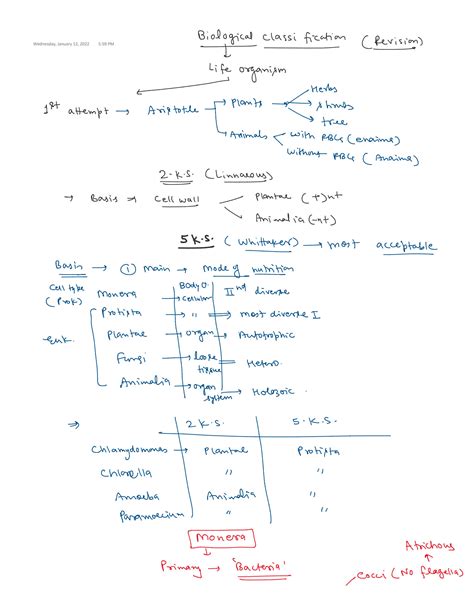 Wednesday, January 12, 2022 5:59 PM
Biological classification (Revision)
Life organism
1st attempt → Aristotle → Plants → Herbs
shrubs
tree
Animals → with RBCs (enaima)
without RBCs (Anaima)
2.K.S. (Linnaeous)
→ Basis ⇒ Cell wall Plantae (+)nt
Animalia (-nt)
5 K.S. (Whittaker) → most acceptable
Basis → (i) main → Mode of nutrition
Cell type Body O.
(Prok) Monera → cellular IInd diverse
Protista → " ⇒ most diverse I
Euk. Plantae → organ → Autotrophic
Fungi → loose tissue = Hetero.
Animalia → organ system → Holozoic
⇒ 2 K.S. 5.K.S.
Chlamydomonas → Plantae Protista
Chlorella " "
Amoeba Animalia "
Paramoecium " "
Monera
Primary → 'Bacteria'
Atrichous
cocci (No flagella)